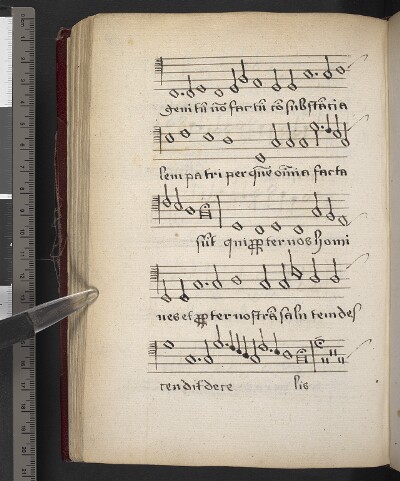 genitū nō factū cō substācia
lem pa tri per quē om̄ia facta
sūt qui ꝓpter nos homi
nes et ꝓpter nostrā salu tem des
cendit de ce lis